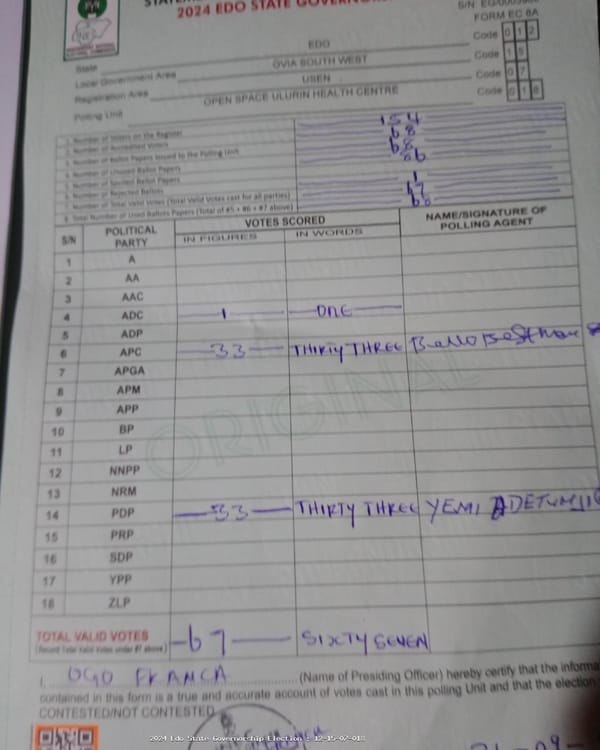 2024 EDO STATE GOVERNOR
FORM EC 8A
State EDO Code 0 1 2
Local Government Area OVIA SOUTH WEST Code 1 5
Registration Area USEN Code 0 7
Polling Unit OPEN SPACE ULURIN HEALTH CENTRE Code 0 1 8
1. Number of Voters on the Register 154
2. Number of Accredited Voters 68
3. Number of Ballot Papers Issued to the Polling Unit 68
4. Number of Unused Ballot Papers 86
5. Number of Spoiled Ballot Papers
6. Number of Rejected Ballots 1
7. Number of Total Valid Votes (Total Valid Votes cast for all parties) 67
8. Total Number of Used Ballots Papers (Total of #5 + #6 + #7 above) 68
S/N POLITICAL PARTY VOTES SCORED NAME/SIGNATURE OF POLLING AGENT
IN FIGURES IN WORDS
1 A
2 AA
3 AAC
4 ADC 1 ONE
5 ADP
6 APC 33 THIRTY THREE Bello
7 APGA
8 APM
9 APP
10 BP
11 LP
12 NNPP
13 NRM
14 PDP 33 THIRTY THREE YEMI
15 PRP
16 SDP
17 YPP
18 ZLP
ORIGINAL
TOTAL VALID VOTES 67 SIXTY SEVEN
(Record Total Valid Votes under #7 above)
I, OGO FRANCA (Name of Presiding Officer) hereby certify that the informa
contained in this form is a true and accurate account of votes cast in this polling Unit and that the election
CONTESTED/NOT CONTESTED
2024 Edo State Governorship Election : 12-15-07-018